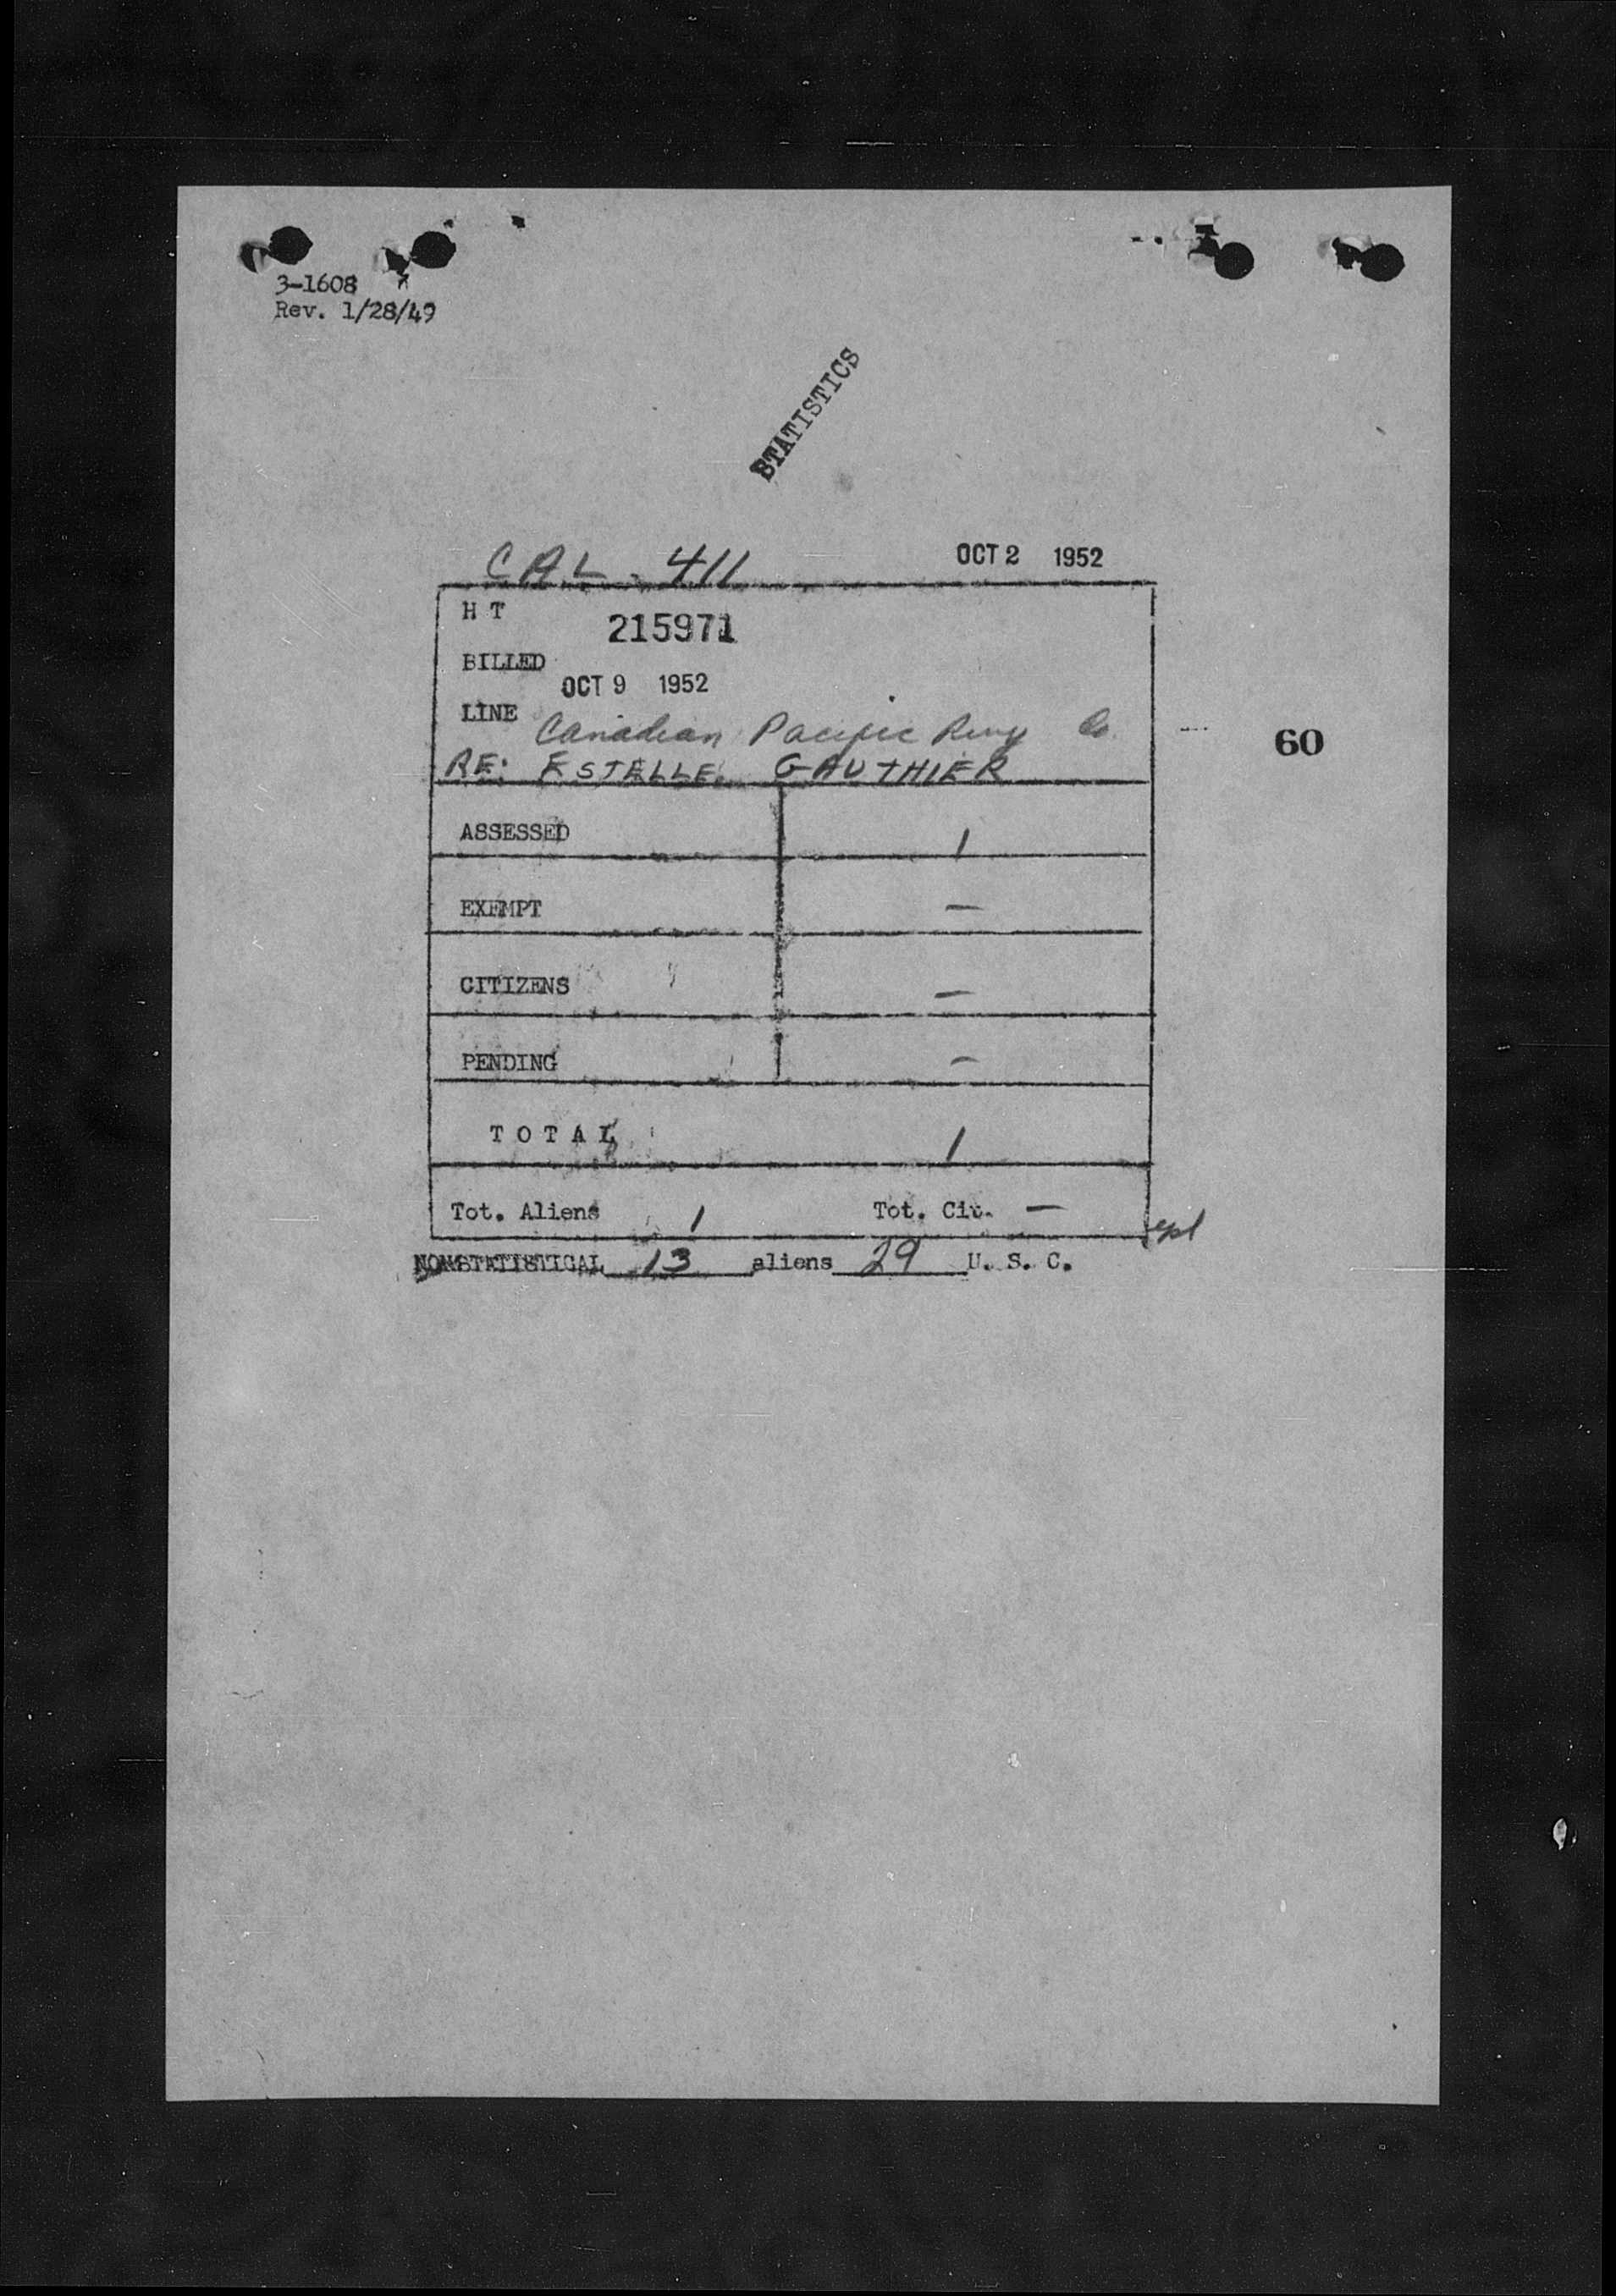 3-1608
Rev. 1/28/49
STATISTICS
CAL - 411 OCT 2 1952
H T 215971
BILLED
OCT 9 1952
LINE Canadian Pacific Rwy Co.
60
RE: ESTELLE GAUTHIER
ASSESSED 1
EXEMPT —
CITIZENS —
PENDING —
T O T A L 1
Tot. Aliens 1 Tot. Cit. —
NONSTATISTICAL 13 aliens 29 U. S. C.